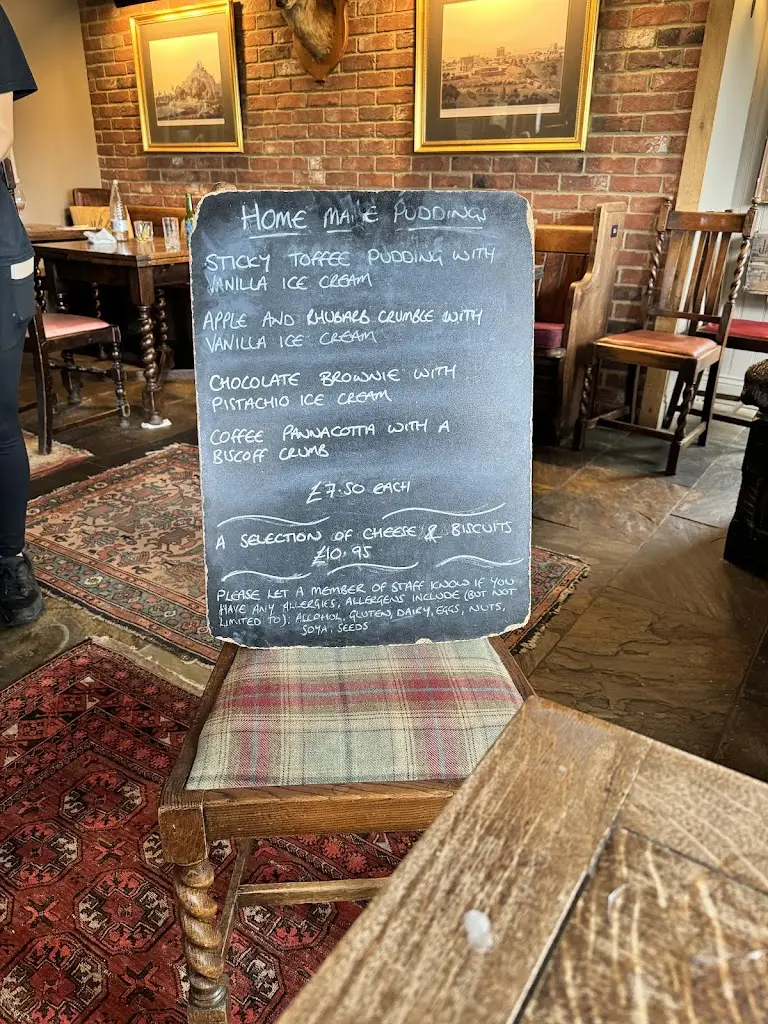 HOME MADE PUDDINGS
STICKY TOFFEE PUDDING WITH
VANILLA ICE CREAM
APPLE AND RHUBARB CRUMBLE WITH
VANILLA ICE CREAM
CHOCOLATE BROWNIE WITH
PISTACHIO ICE CREAM
COFFEE PANNACOTTA WITH A
BISCOFF CRUMB
£7.50 EACH
A SELECTION OF CHEESE & BISCUITS
£10.95
PLEASE LET A MEMBER OF STAFF KNOW IF YOU
HAVE ANY ALLERGIES, ALLERGENS INCLUDE (BUT NOT
LIMITED TO): ALCOHOL, GLUTEN, DAIRY, EGGS, NUTS,
SOYA, SEEDS